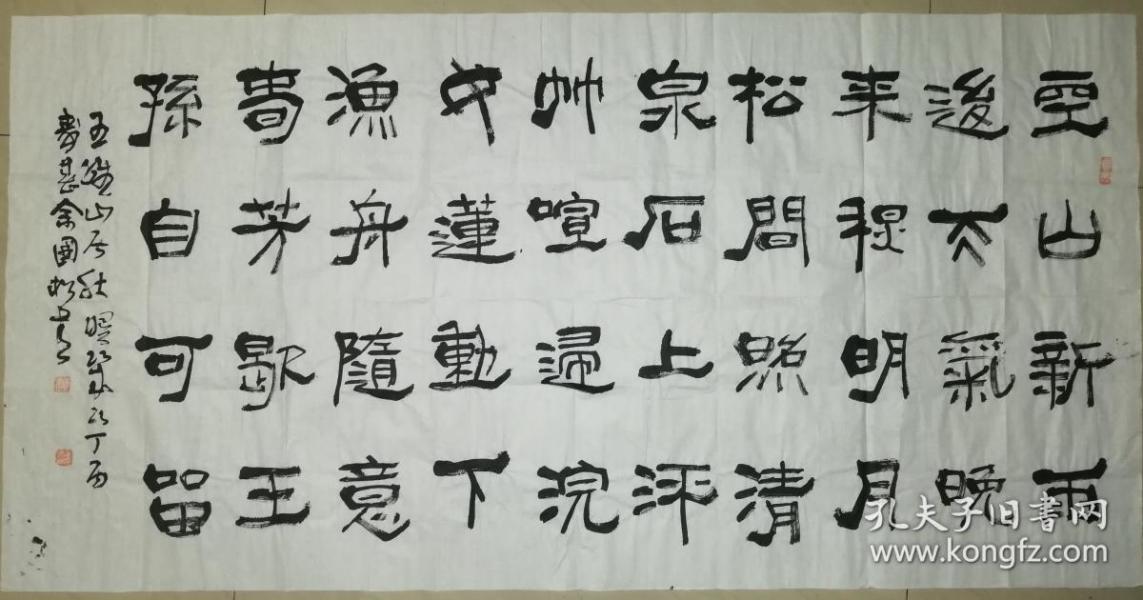 空山新雨
後天氣晚
来秋明月
松間照清
泉石上流
竹喧歸浣
女蓮動下
漁舟隨意
春芳歇王
孫自可留
王維山居秋暝丁酉
余國松
孔夫子旧书网
www.kongfz.com